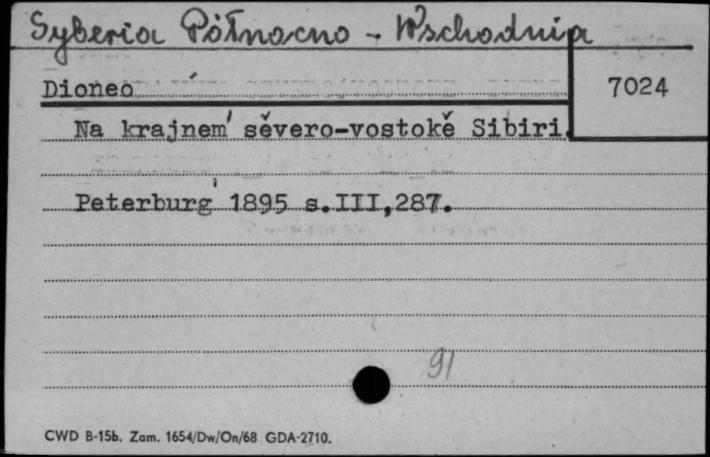 Syberia Północno - Wschodnia
Dioneo
7024
Na krajnem' sěvero-vostokě Sibiri.
Peterburg' 1895 s.III,287.
91
CWD B-15b. Zam. 1654/Dw/On/68 GDA-2710.